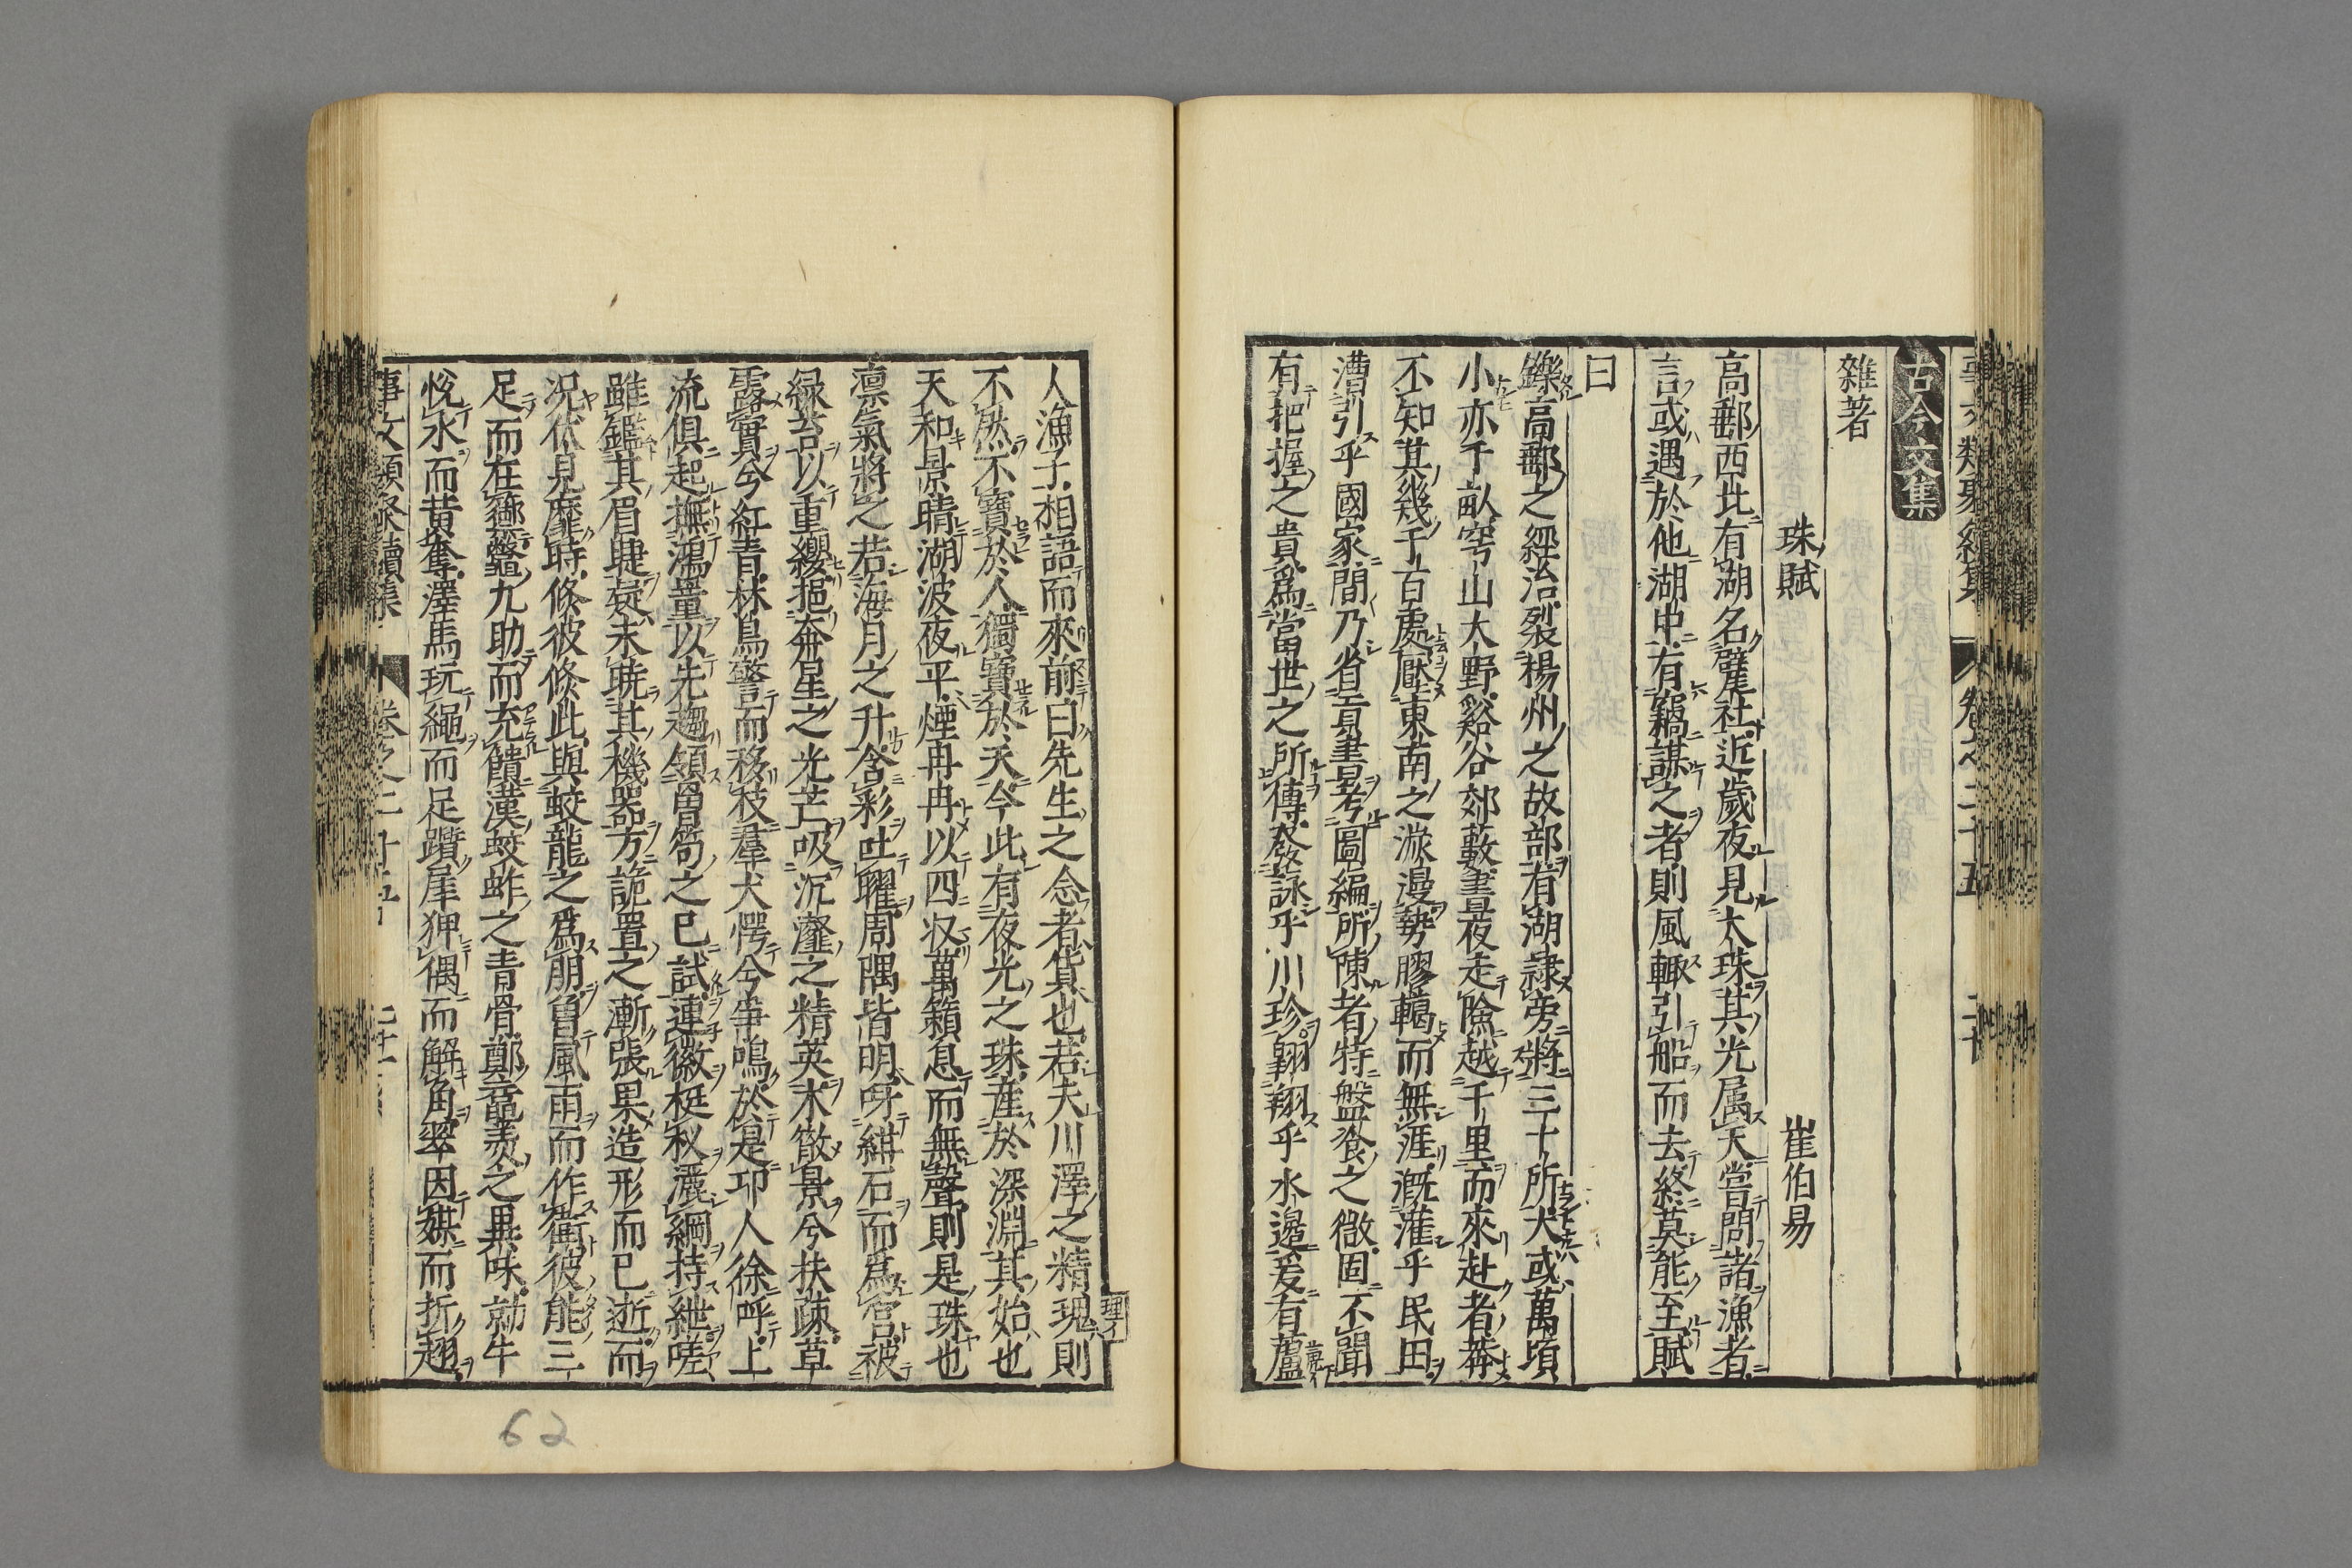 古今文集
雜著
珠賦 崔伯易
高郵西北有湖名甓社近歲夜見大珠其光属天嘗問諸漁者
言或遇於他湖中有竊謀之者則風輙引船而去終莫能至賦
曰
鑠高郵之經治裂楊州之故部有湖隷旁將三十所大或萬頃
小亦千畝穹山大野谿谷郊藪晝夜走險越千里而來赴者莽
不知其幾千百處壓東南之渺漫勢膠轕而無涯漑灌乎民田
漕引乎國家間乃省貢書考圖編所陳者特盤飱之微固不聞
有把握之貴爲當世之所傳發詠乎川珍翺翔乎水邊爰有蘆
人漁子相語而來前曰先生之念者貨也若夫川澤之精瑰則
不然不寶於人獨寶於天今此有夜光之珠産於深淵其始也
天和景晴湖波夜平煙冉冉以四収萬籟息而無聲則是珠也
凛氣將之若海月之升含彩吐耀周隅皆明呀紺石而爲宫被
緑苔以重纓挹奔星之光芒吸沉瀣之精英木散景兮扶疎草
露實兮紅青林鳥驚而移枝羣犬愕兮爭鳴於是卭人徐呼上
流俱起撫鴻罿以先趨領曽笱之已試連徽梃杈灑綱持紲嗟
雖鑑其眉睫疑未暁其機器方詭置之漸張果造形而已逝而
况依見靡時倐彼倐此與蛟龍之爲朋冒風雨而作衛彼能三
足而在藥鼈九助而充饋漢蛟鮓之青骨鄭黿羮之異味勍牛
悅水而黄奪澤馬玩繩而足躓犀狎偶而解角翠因媒而折翅
事文類聚續集 卷之二十五
62